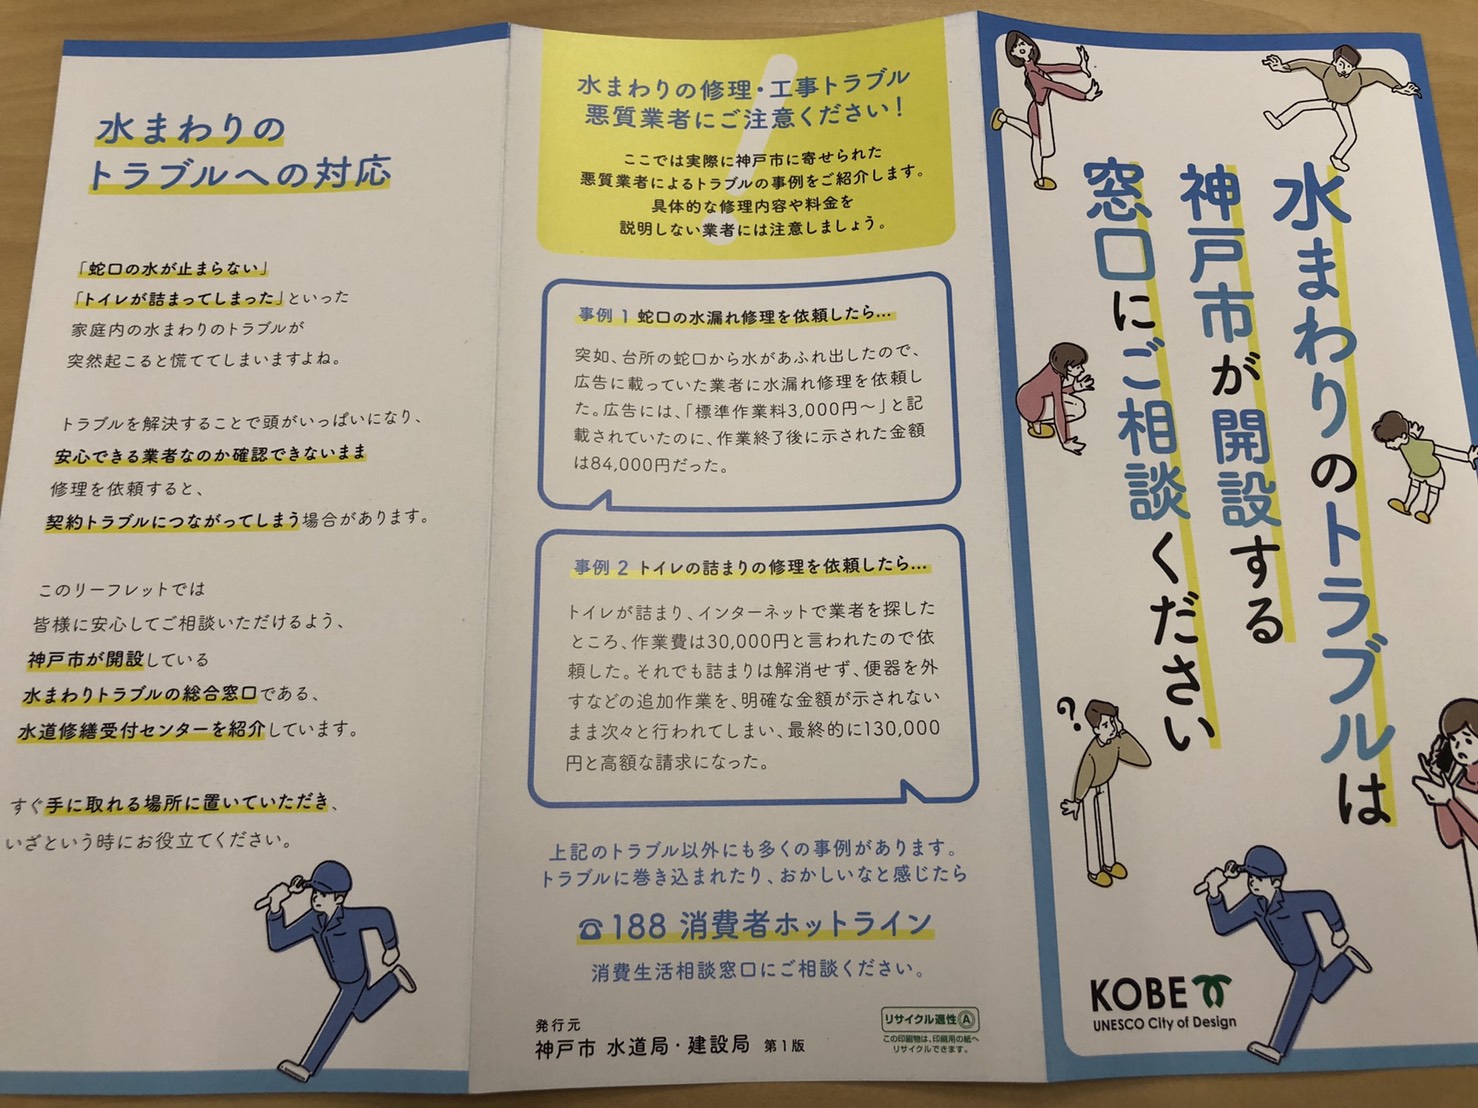 水まわりの
トラブルへの対応
「蛇口の水が止まらない」
「トイレが詰まってしまった」といった
家庭内の水まわりのトラブルが
突然起こると慌ててしまいますよね。
トラブルを解決することで頭がいっぱいになり、
安心できる業者なのか確認できないまま
修理を依頼すると、
契約トラブルにつながってしまう場合があります。
このリーフレットでは
皆様に安心してご相談いただけるよう、
神戸市が開設している
水まわりトラブルの総合窓口である、
水道修繕受付センターを紹介しています。
すぐ手に取れる場所に置いていただき、
いざという時にお役立てください。
水まわりの修理・工事トラブル
悪質業者にご注意ください!
ここでは実際に神戸市に寄せられた
悪質業者によるトラブルの事例をご紹介します。
具体的な修理内容や料金を
説明しない業者には注意しましょう。
事例 1 蛇口の水漏れ修理を依頼したら…
突如、台所の蛇口から水があふれ出したので、
広告に載っていた業者に水漏れ修理を依頼し
た。広告には、「標準作業料3,000円〜」と記
載されていたのに、作業終了後に示された金額
は84,000円だった。
事例 2 トイレの詰まりの修理を依頼したら…
トイレが詰まり、インターネットで業者を探した
ところ、作業費は30,000円と言われたので依
頼した。それでも詰まりは解消せず、便器を外
すなどの追加作業を、明確な金額が示されない
まま次々と行われてしまい、最終的に130,000
円と高額な請求になった。
上記のトラブル以外にも多くの事例があります。
トラブルに巻き込まれたり、おかしいなと感じたら
☎188 消費者ホットライン
消費生活相談窓口にご相談ください。
発行元
神戸市 水道局・建設局 第1版
リサイクル適性Ⓐ
この印刷物は、印刷用の紙へ
リサイクルできます。
水まわりのトラブルは
神戸市が開設する
窓口にご相談ください
?
KOBE
UNESCO City of Design